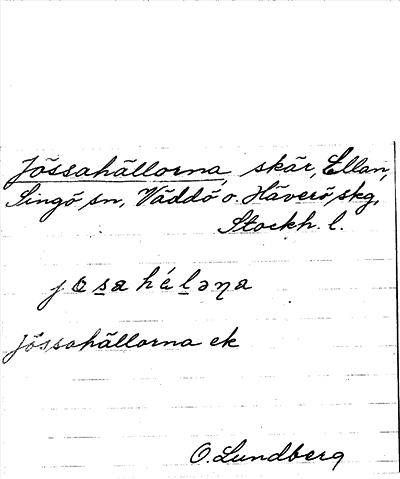 Jössahällorna, skär, Ellan,
Singö sn, Väddö o. Häverö skg,
Stockh. l.
jɵsahéləɳa
Jössahällorna ek
O. Lundberg